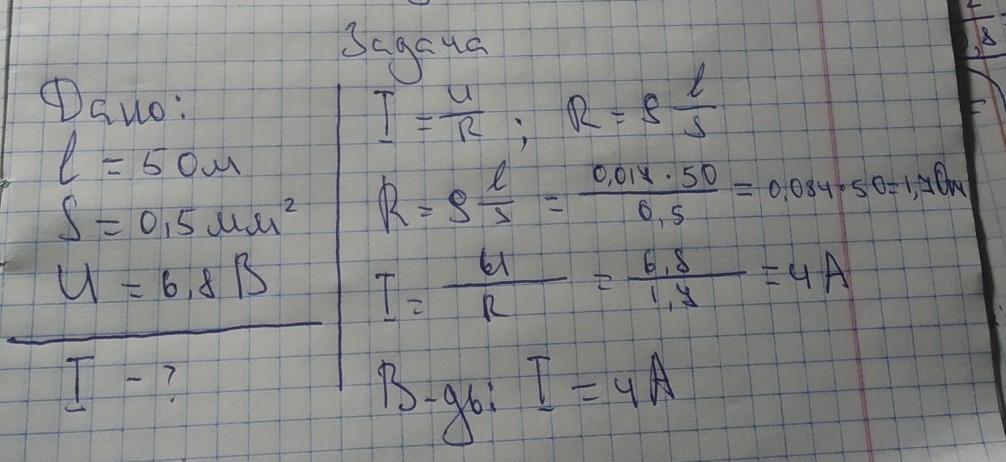 Задача
Дано:
l = 50м
S = 0,5 мм²
U = 6,8 В
I - ?
I = U/R ; R = ρ l/s
R = ρ l/s = 0,017 · 50 / 0,5 = 0,034 · 50 = 1,7 Ом
I = U/R = 6,8/1,7 = 4 А
В-дь: I = 4А